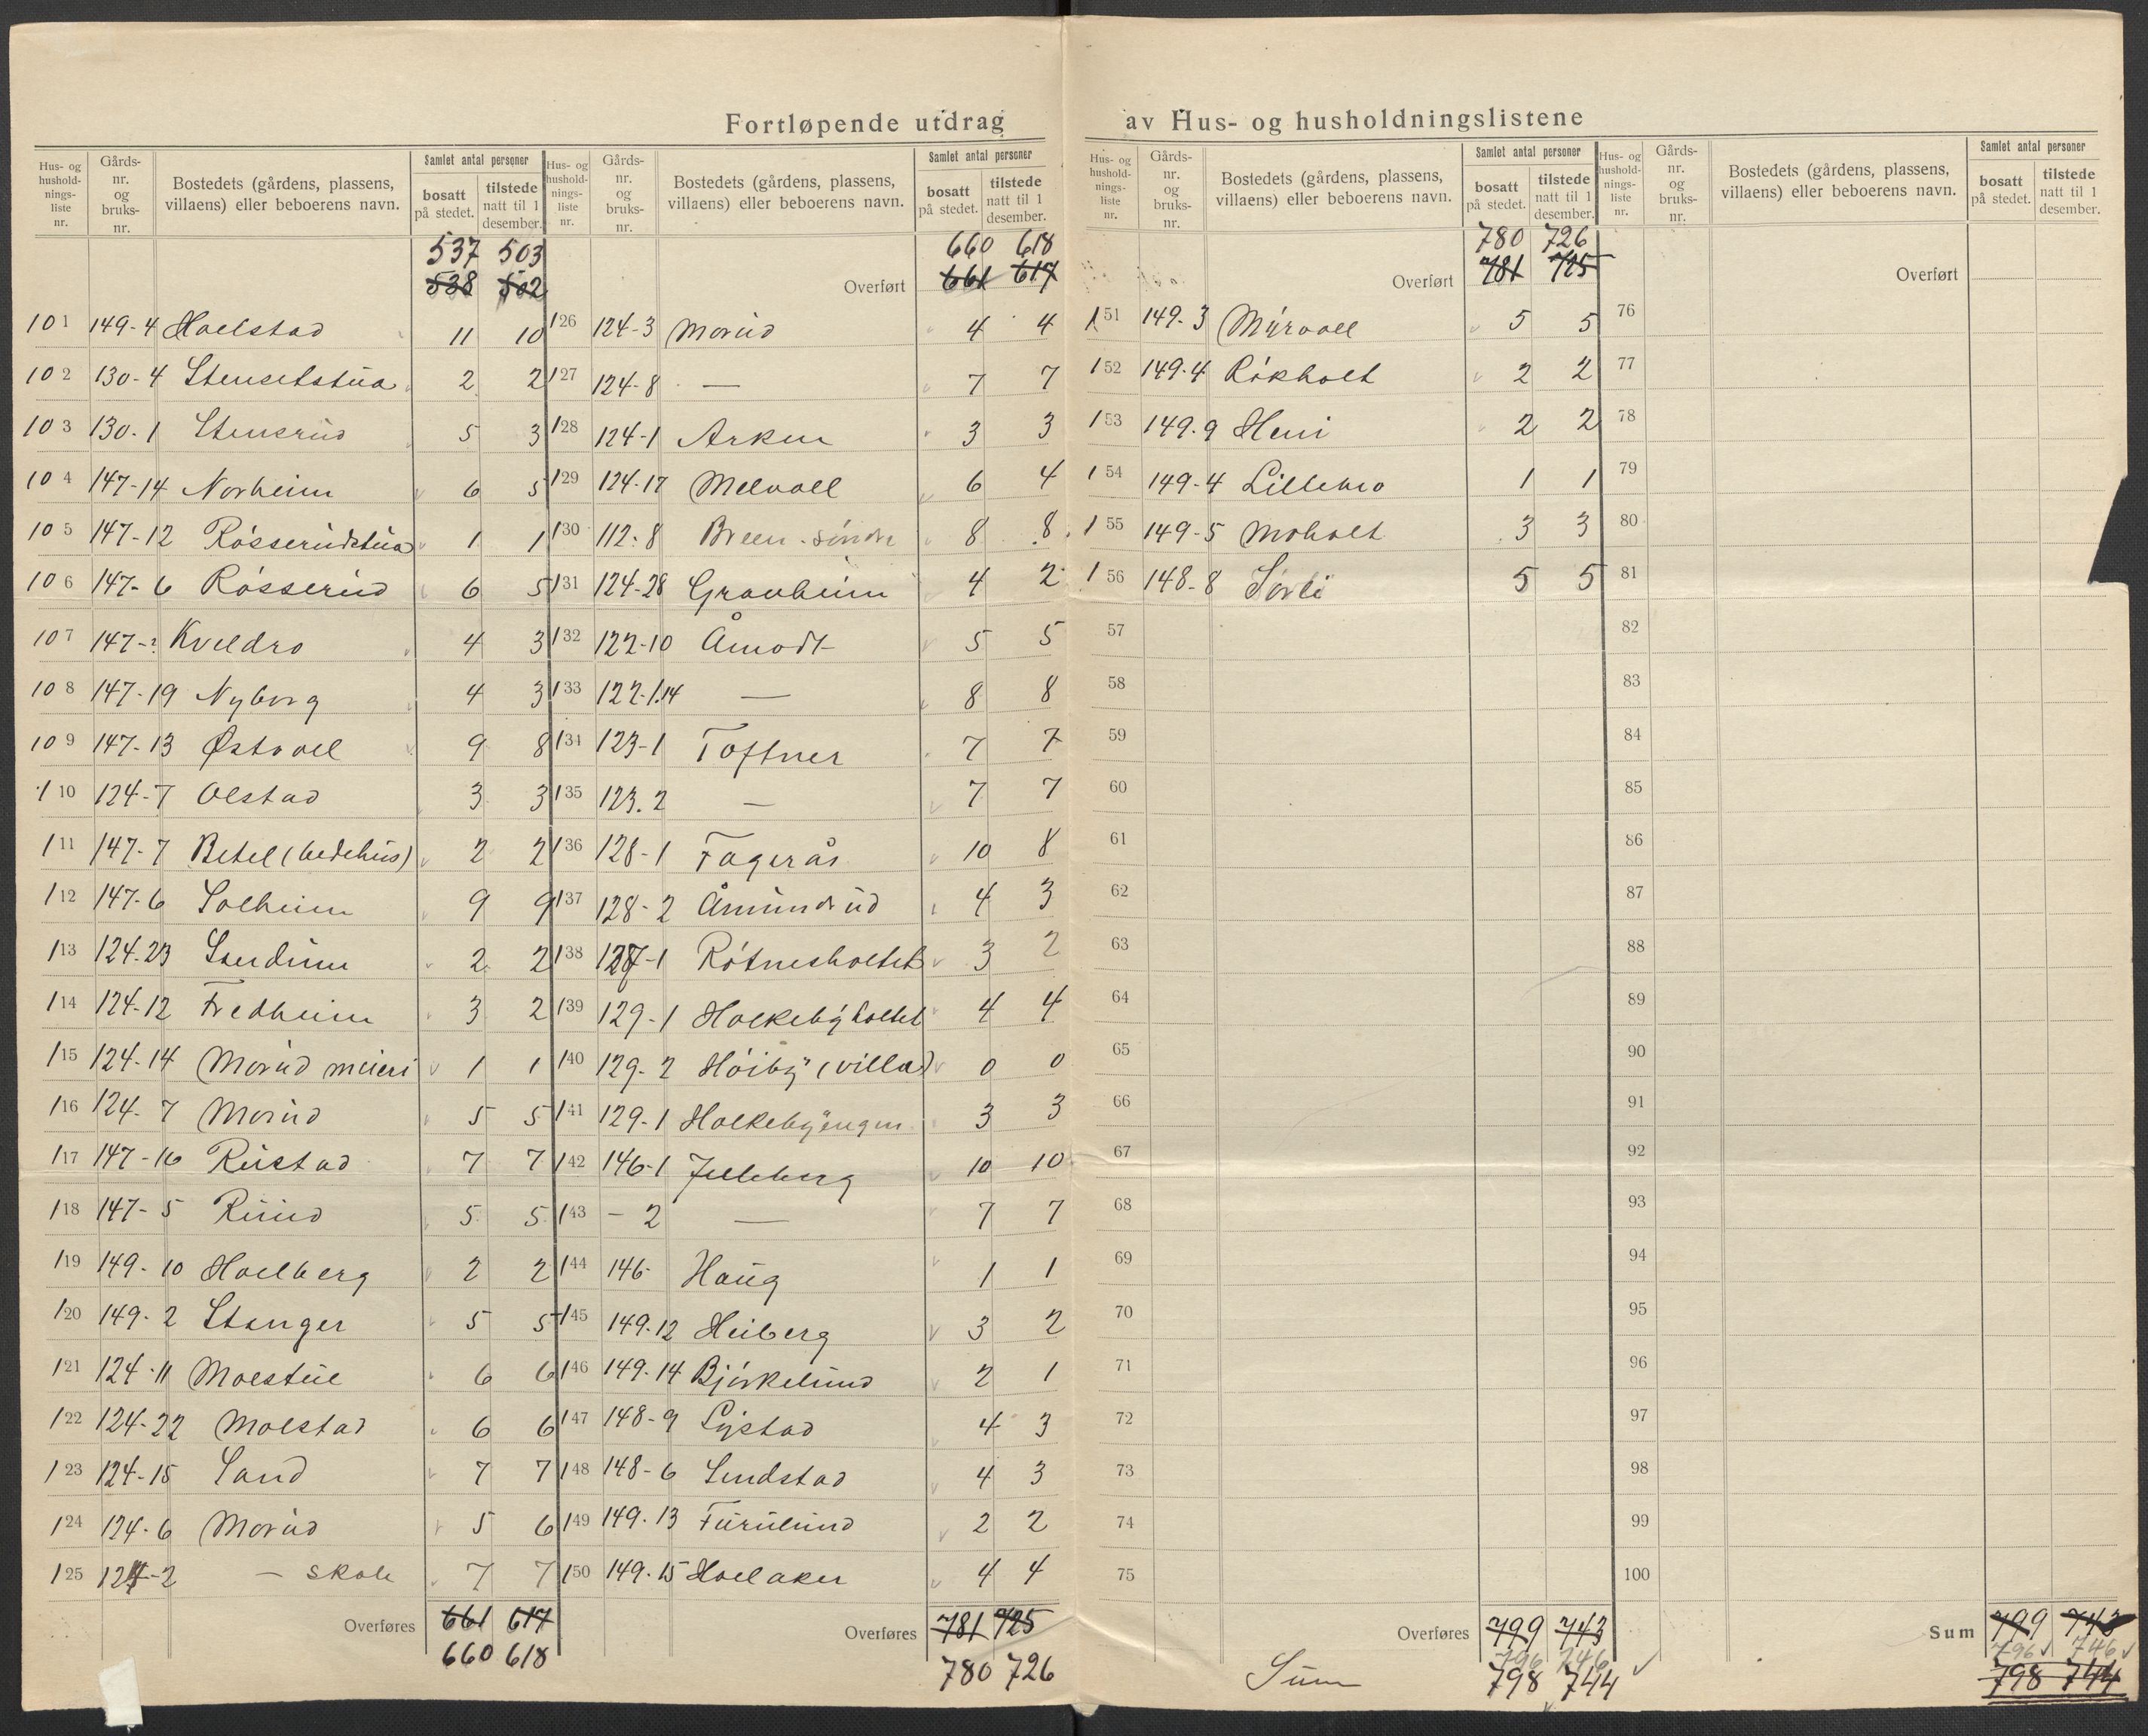 Fortløpende utdrag av Hus- og husholdningslistene
Hus- og hushold-nings-liste nr. Gårds-nr. og bruks-nr. Bostedets (gårdens, plassens, villaens) eller beboerens navn. Samlet antal personer bosatt på stedet. tilstede natt til 1 desember.
537 503
538 502
101 149-4 Holstad 11 10
102 130-4 Stensetstua 2 2
103 130-1 Stensrud 5 3
104 147-14 Norheim 6 5
105 147-12 Røsserudstua 1 1
106 147-6 Røsserud 6 5
107 147-? Kveldro 4 3
108 147-19 Nyborg 4 3
109 147-13 Østvoll 9 8
110 124-7 Olstad 3 3
111 147-7 Betel (bedehus) 2 2
112 147-6 Solheim 9 9
113 124-23 2 2
114 124-12 Fredheim 3 2
115 124-14 Morud meieri 1 1
116 124-7 Morud 5 5
117 147-16 Rustad 7 7
118 147-5 Ruud 5 5
119 149-10 Holberg 2 2
120 149-2 Stanger 5 5
121 124-11 Molstul 6 6
122 124-22 Molstad 6 6
123 124-15 Sand 7 7
124 124-6 Morud 5 6
125 124-2 — skole 7 7
Overføres 661 617
660 618
Hus- og hushold-nings-liste nr. Gårds-nr. og bruks-nr. Bostedets (gårdens, plassens, villaens) eller beboerens navn. Samlet antal personer bosatt på stedet. tilstede natt til 1 desember.
660 618
Overført 661 617
126 124-3 Morud 4 4
127 124-8 — 7 7
128 124-1 Asken 3 3
129 124-17 Melvoll 6 4
130 112-8 Breen søndre 8 8
131 124-28 Granheim 4 2
132 122-10 Åmodt 5 5
133 122-1.14 — 8 8
134 123-1 Toftner 7 7
135 123.2 — 7 7
136 128-1 Fagerås 10 8
137 128-2 Åmundrud 4 3
138 127-1 Røtnesholtet 3 2
139 129-1 Holkebyholtet 4 4
140 129-2 Høiby (villa) 0 0
141 129-1 Holkebyengen 3 3
142 146-1 Julleberg 10 10
143 - 2 — 7 7
144 146- Haug 1 1
145 149.12 Heiberg 3 2
146 149-14 Bjørkelund 2 1
147 148-9 Lystad 4 3
148 148-6 Lundstad 4 3
149 149.13 Furulund 2 2
150 149.15 Holaker 4 4
Overføres 781 725
780 726
Hus- og hushold-nings-liste nr. Gårds-nr. og bruks-nr. Bostedets (gårdens, plassens, villaens) eller beboerens navn. Samlet antal personer bosatt på stedet. tilstede natt til 1 desember.
780 726
Overført 781 725
151 149-3 Myrvoll 5 5
152 149-4 Røkholt 2 2
153 149-9 Heni 2 2
154 149-4 Lillemo 1 1
155 149-5 Moholt 3 3
156 148-8 Sørli 5 5
57
58
59
60
61
62
63
64
65
66
67
68
69
70
71
72
73
74
75
Overføres 799 743
796 746
Sum 798 744
Hus- og hushold-nings-liste nr. Gårds-nr. og bruks-nr. Bostedets (gårdens, plassens, villaens) eller beboerens navn. Samlet antal personer bosatt på stedet. tilstede natt til 1 desember.
Overført
76
77
78
79
80
81
82
83
84
85
86
87
88
89
90
91
92
93
94
95
96
97
98
99
100
Sum 799 743
796 746
798 744